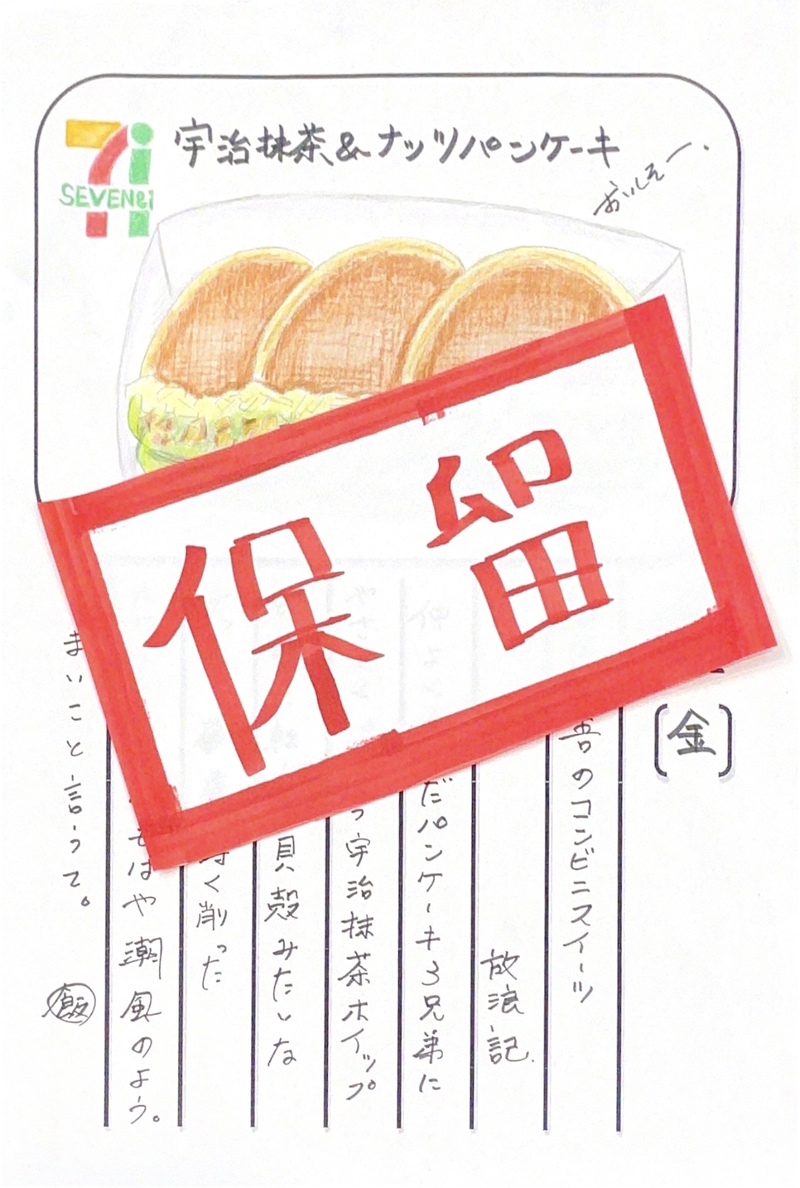 SEVEN&i
宇治抹茶&ナッツパンケーキ
おいしそー.
保留
〔金〕
のコンビニスイーツ
放浪記.
だパンケーキ3兄弟に
宇治抹茶ホイップ
貝殻みたいな
く削った
はや潮風のよう。
まいこと言うて。
飯